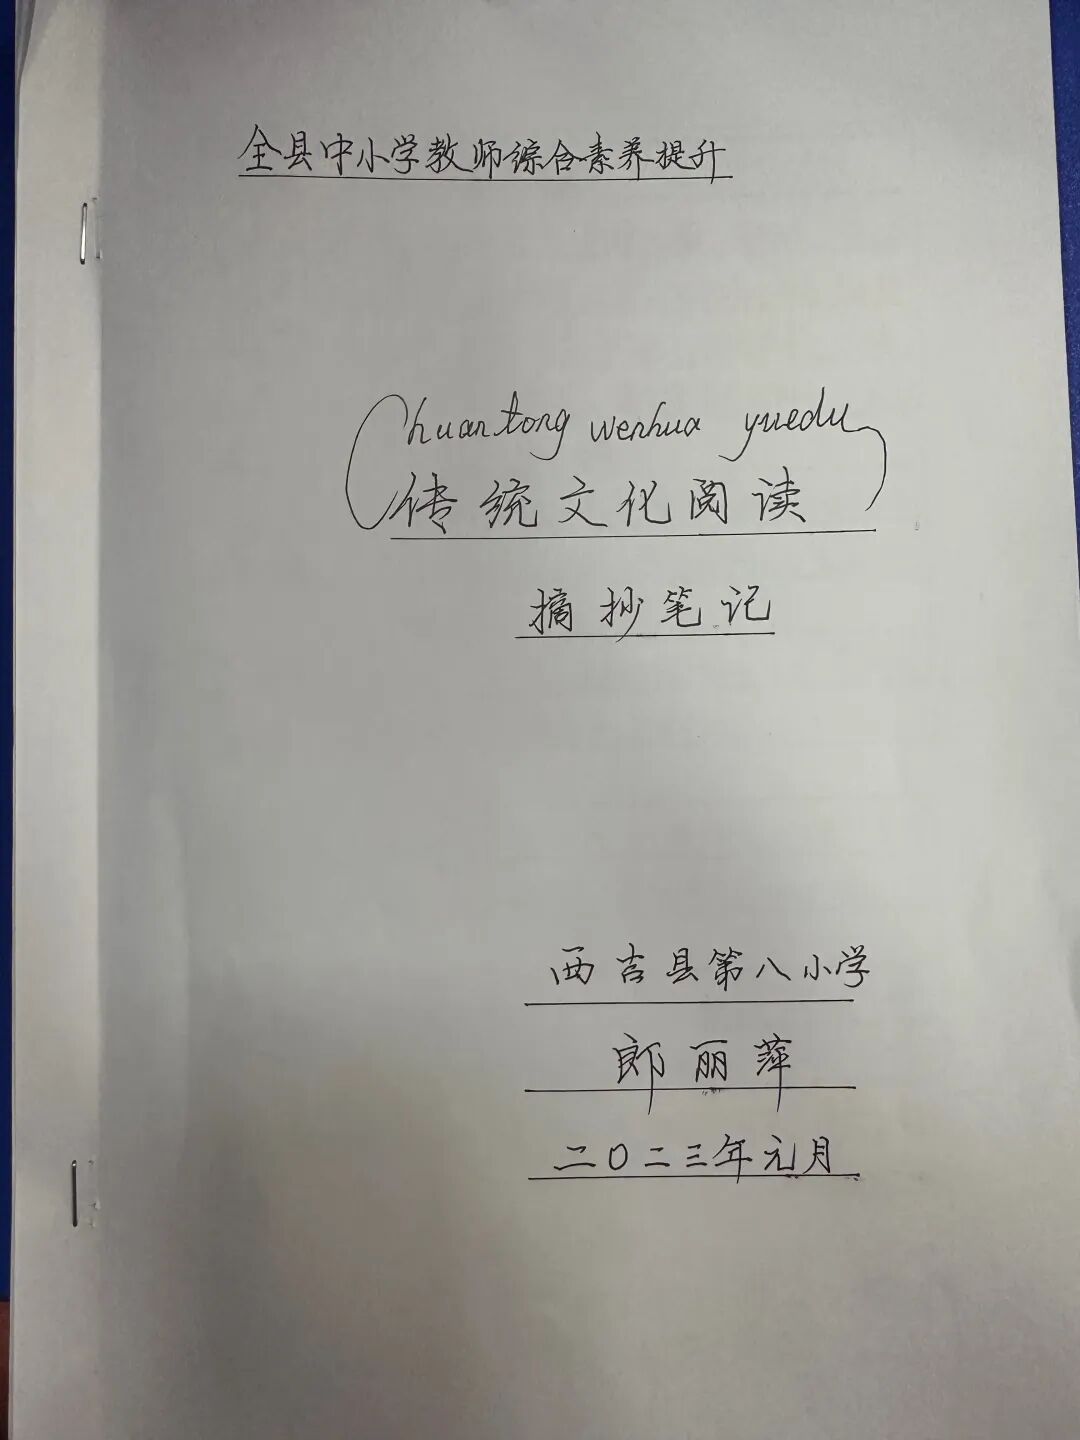 全县中小学教师综合素养提升
Chuantong wenhua yuedu
传统文化阅读
摘抄笔记
西吉县第八小学
郎丽萍
二〇二三年元月